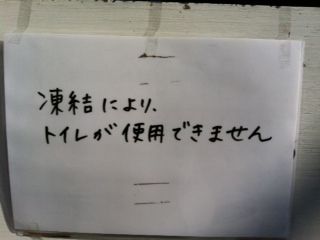 凍結により、
トイレが使用できません